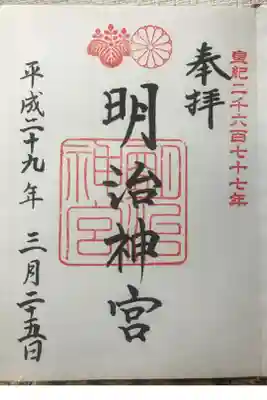 皇紀二千六百七十七年
奉拝
明治神宮
明治神宮
平成二十九年 三月二十五日